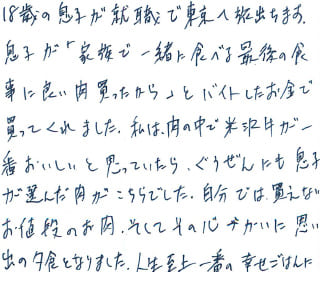 18歳の息子が就職で東京へ旅出ちます。
息子が「家族で一緒に食べる最後の食
事に良い肉買ったから」とバイトしたお金で
買ってくれました。私は、肉の中で米沢牛が一
番おいしいと思っていたら、ぐうぜんにも息子
が選んだ肉がこちらでした。自分では買えない
お値段のお肉、そしてその心づかいに思い
出の夕食となりました。人生至上一番の幸せごはんに